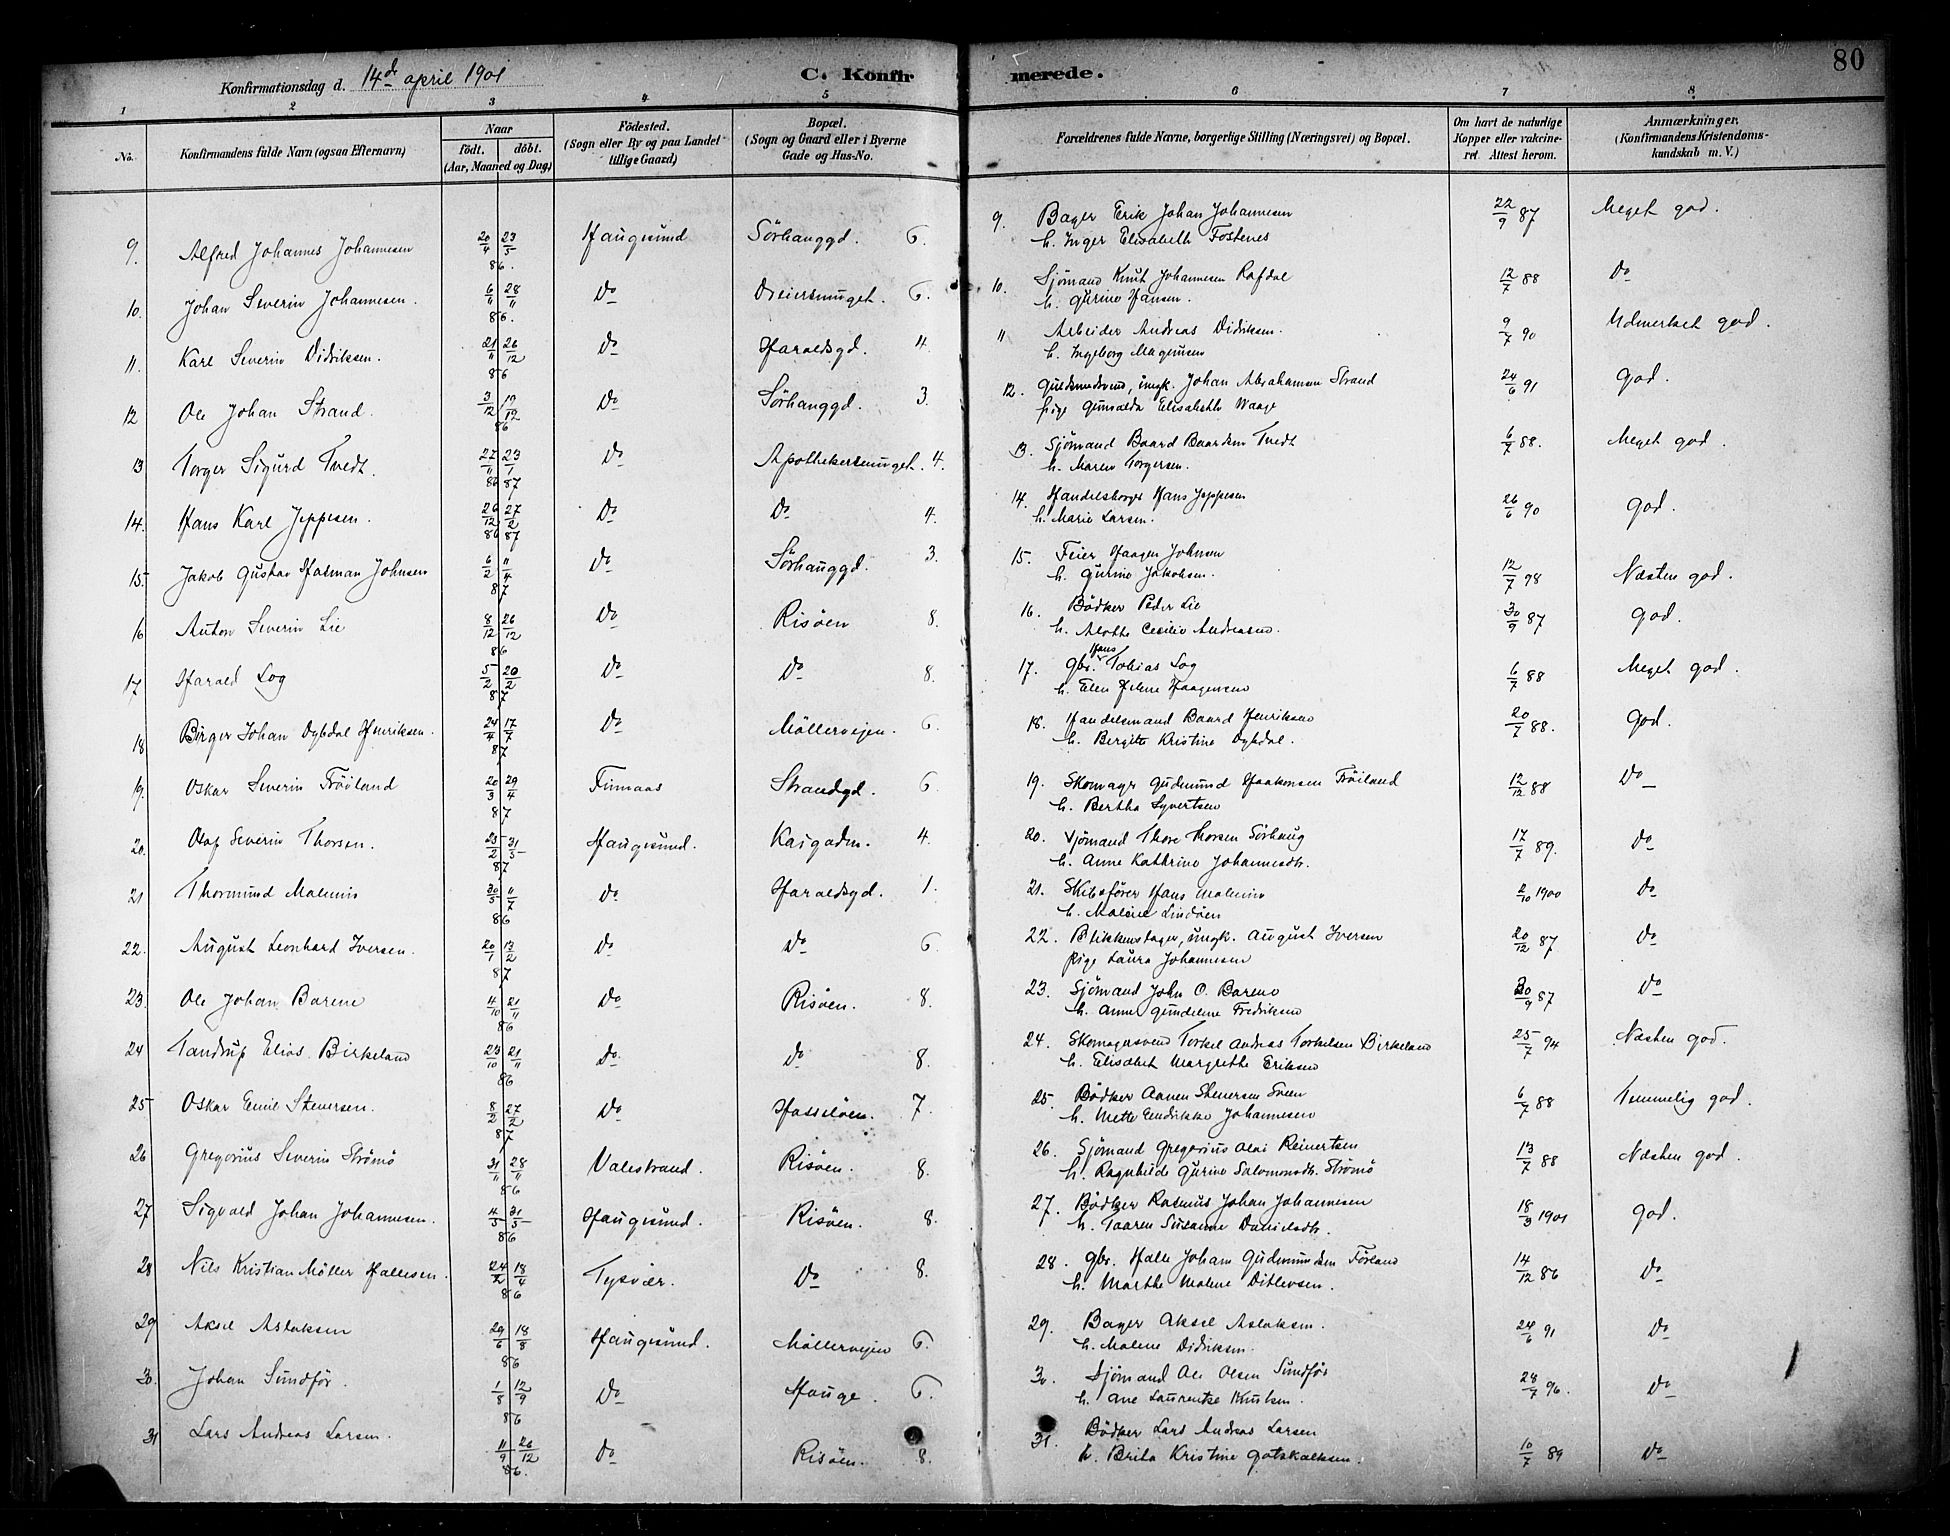 80
Konfirmationsdag d. 14d april 1901
C. Konfirmerede.
1 2 3 4 5 6 7 8
No.
Konfirmandens fulde Navn (ogsaa Efternavn)
Naar
födt. döbt.
(Aar, Maaned og Dag)
Födested.
(Sogn eller By og paa Landet
tillige Gaard)
Bopæl.
(Sogn og Gaard eller i Byerne
Gade og Hus-No.
Forældrenes fulde Navne, borgerlige Stilling (Næringsvei) og Bopæl.
Om havt de naturlige
Kopper eller vakcine-
ret. Attest herom.
Anmærkninger.
(Konfirmandens Kristendoms-
kundskab m. V.)
9. Alfred Johannes Johannesen 20/4 23/5 86. Haugesund Sörhauggd. 6.
9. Bager Erik Johan Johannesen 22/9 87 Meget god.
h. Inger Elisabeth Fostenes
10. Johan Severin Johannesen. 6/11 28/11 86. Do Dreiersmuget. 6.
10. Sjömand Knut Johannesen Rafdal 12/7 88 Do
h. Gurine Hansen.
11. Karl Severin Didriksen. 21/11 26/12 86 Do Haraldsgd. 4.
11 Arbeider Andreas Didriksen. 9/7 90 Udmerket god.
h. Ingeborg Magnusen
12 Ole Johan Strand. 3/12 19/12 86 Do Sörhauggd. 3.
12. Guldsmedsvend, ungk. Johan Abrahamsen Strand 24/6 91 god.
pige Gunvalda Elisabeth Waage
13. Torger Sigurd Tvedt. 27/11 86 23/1 87 Do Apothekersmuget. 4.
13. Sjömand Baard Baardsen Tvedt 6/7 88. Meget god.
h. Maren Torgersen.
14. Hans Karl Jeppesen. 26/12 86 27/2 87 Do Do 4.
14. Handelsborger Hans Jeppesen 26/6 90 god.
h. Marie Larsen.
15. Jakob Gustav Hatman Johnsen 6/2 11/4 87 Do Sörhauggd. 3.
15. Feier Haagen Johnsen 12/7 98 Næsten god.
h. Gurine Jakobsen.
16 Anton Severin Lie 8/12 26/12 86 Do Risöen 8.
16. Bödker Peder Lie 30/9 87 god.
h. Alotte Cecilie Andreasen.
17 Harald Log 5/2 20/2 87 Do Do 8.
17. Gbr. Hans Tobias Log 6/7 88 Meget god.
h. Elen Helene Haagensen
18 Birger Johan Dybdal Henriksen. 24/4 17/7 87 Do Möllerveien. 6.
18. Handelsmand Baard Henriksen 20/7 88. god.
h. Bergitte Kristine Dybdal.
19. Oskar Severin Fröiland 20/3 29/4 87 Finnaas Strandgd. 6
19. Skomager Gudmund Haakonsen Fröiland 12/12 88 Do
h. Bertha Syvertsen
20. Olaf Severin Thorsen. 25/2 31/5 87 Haugesund. Kaigaden. 4.
20. Sjömand Thore Thorsen Sörhaug 17/7 89. Do
h. Anne Kathrine Johannesdtr.
21 Thormund Malmin 30/5 11/7 86 Do Haraldsgd. 1.
21. Skibsförer Hans Malmin 2/10 1900 Do
h. Malene Lindöen
22. August Leonhard Iversen. 20/1 13/2 87 Do Do 6.
22. Blikkenslager, ungk. August Iversen 20/12 87 Do
pige Laura Johannesen
23. Ole Johan Barene 4/10 21/11 86 Do Risöen. 8.
23. Sjömand John O. Barene 30/9 87 Do
h. Anne Gundeline Fredriksen
24 Tandrup Elias Birkeland 23/10 21/11 86 Do. Do 8.
24. Skomagersvend Torkel Andreas Torkelsen Birkeland 25/7 94 Næsten god.
h. Elisabet Margrethe Eriksen
25 Oskar Emil Stenersen. 8/2 27/2 87 Do Hasselöen. 7.
25. Bödker Aanen Stenersen Sveen 6/7 88 Temmelig god.
h. Mette Endrikke Johannesen
26 Gregorius Severin Strömö 31/11 28/11 86 Valestrand. Risöen. 8.
26. Sjömand Gregorius Olai Reinertsen 13/7 88 Næsten god.
h. Ragnhilde Gurine Salomonsdtr. Strömö
27 Sigvald Johan Johannesen. 4/5 31/5 86 Haugesund. Risöen. 8.
27. Bödker Rasmus Johan Johannesen 18/3 1901 god.
h. Taaren Susanne Danielsdtr.
28 Nils Kristian Möller Hallesen. 24/2 18/4 86 Tysvær. Do 8.
28. Gbr. Halle Johan Gudmundsen Förland 14/12 86 Do
h. Marthe Malene Ditlevsen.
29 Aksel Aslaksen 29/6 18/8 86 Haugesund. Möllerveien 6.
29. Bager Aksel Aslaksen. 24/6 91 Do
h. Malene Didriksen.
30. Johan Sundför. 1/8 12/9 86 Do Hauge. 6.
30. Sjömand Ole Olsen Sundför 28/7 96. Do
h. Ane Laurentze Knutsen.
31 Lars Andreas Larsen. 11/9 26/12 86. Do Risöen. 8.
31. Bödker Lars Andreas Larsen 10/7 89 Do
h. Brita Kristine Gotskalksen.